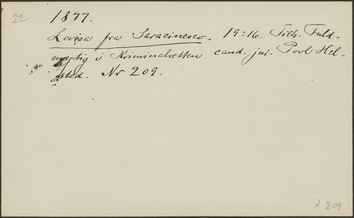 22
1877.
Lovisa fra Saracinesco. 19:16. Tilh. Fuld-
mægtig i Kriminalretten cand. jur. Povl Hel-
Nr 209.
209